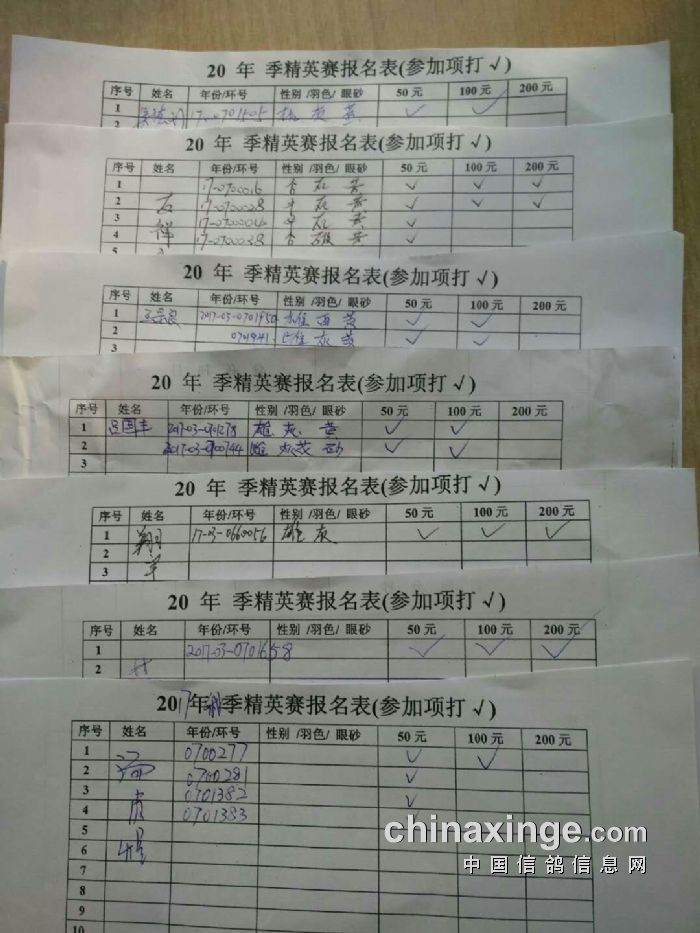 20 年 季精英赛报名表(参加项打√)
序号 姓名 年份/环号 性别 /羽色/ 眼砂 50 元 100 元 200 元
1 √ √
2
20 年 季精英赛报名表(参加项打√)
序号 姓名 年份/环号 性别 /羽色/ 眼砂 50 元 100 元 200 元
1 17-0700016 黄 √ √ √
2 17-0700028 黄 √ √ √
3 黄 √
4 17-0700038 雄 黄 √
5
20 年 季精英赛报名表(参加项打√)
序号 姓名 年份/环号 性别 /羽色/ 眼砂 50 元 100 元 200 元
1 2017-03-0701950 雄 雨 黄 √ √
2 0701941 雄 灰 黄 √ √
3
20 年 季精英赛报名表(参加项打√)
序号 姓名 年份/环号 性别 /羽色/ 眼砂 50 元 100 元 200 元
1 吕国丰 2017-03-0701278 雄 灰 黄 √ √
2 2017-03-0700744 雌 砂 √ √
3
20 年 季精英赛报名表(参加项打√)
序号 姓名 年份/环号 性别 /羽色/ 眼砂 50 元 100 元 200 元
1 翔 17-03-0660056 雄 灰 √ √ √
2 羊
3
20 年 季精英赛报名表(参加项打√)
序号 姓名 年份/环号 性别 /羽色/ 眼砂 50 元 100 元 200 元
1 2017-03-0701658 √ √ √
2
2017年秋季精英赛报名表(参加项打√)
序号 姓名 年份/环号 性别 /羽色/ 眼砂 50 元 100 元 200 元
1 0700277 √ √
2 0700281 √
3 0701382 √
4 0701383
5
6
7
8
9
10
chinaxinge.com
中国信鸽信息网